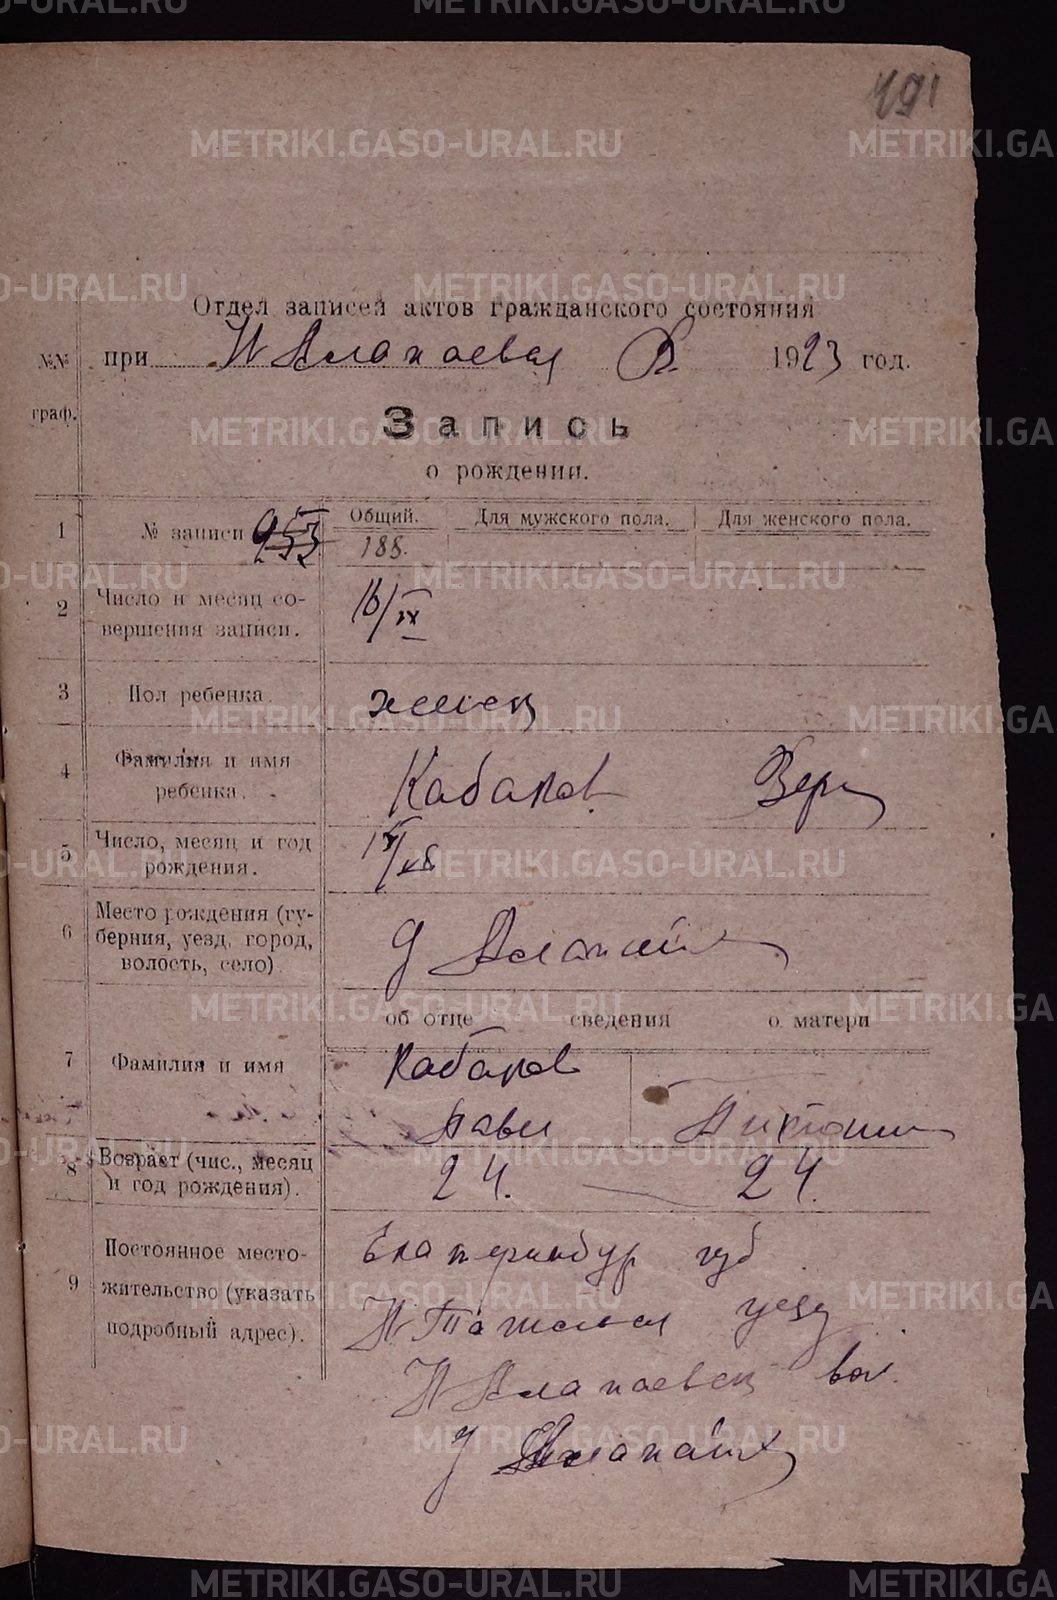 METRIKI.GASO-URAL.RU
191
Отдел записей актов гражданского состояния
№№ граф.
при Н Алапаевск В. 1923 год.
Запись
о рождении.
1 № записи
Общий. Для мужского пола. Для женского пола.
188.
2 Число и месяц со-
вершения записи.
16/IX
3 Пол ребенка. женск
4 Фамилия и имя
ребенка.
Кабаков Вера
5 Число, месяц и год
рождения.
6 Место рождения (гу-
берния, уезд, город,
волость, село).
д Алапаиха
об отце сведения о матери
7 Фамилия и имя
Кабаков
Павел
8 Возраст (чис., месяц
и год рождения).
24. 24.
9 Постоянное место-
жительство (указать
подробный адрес).
Екатеринбур губ
Н Тагильск уезд
Н Алапаевск вол.